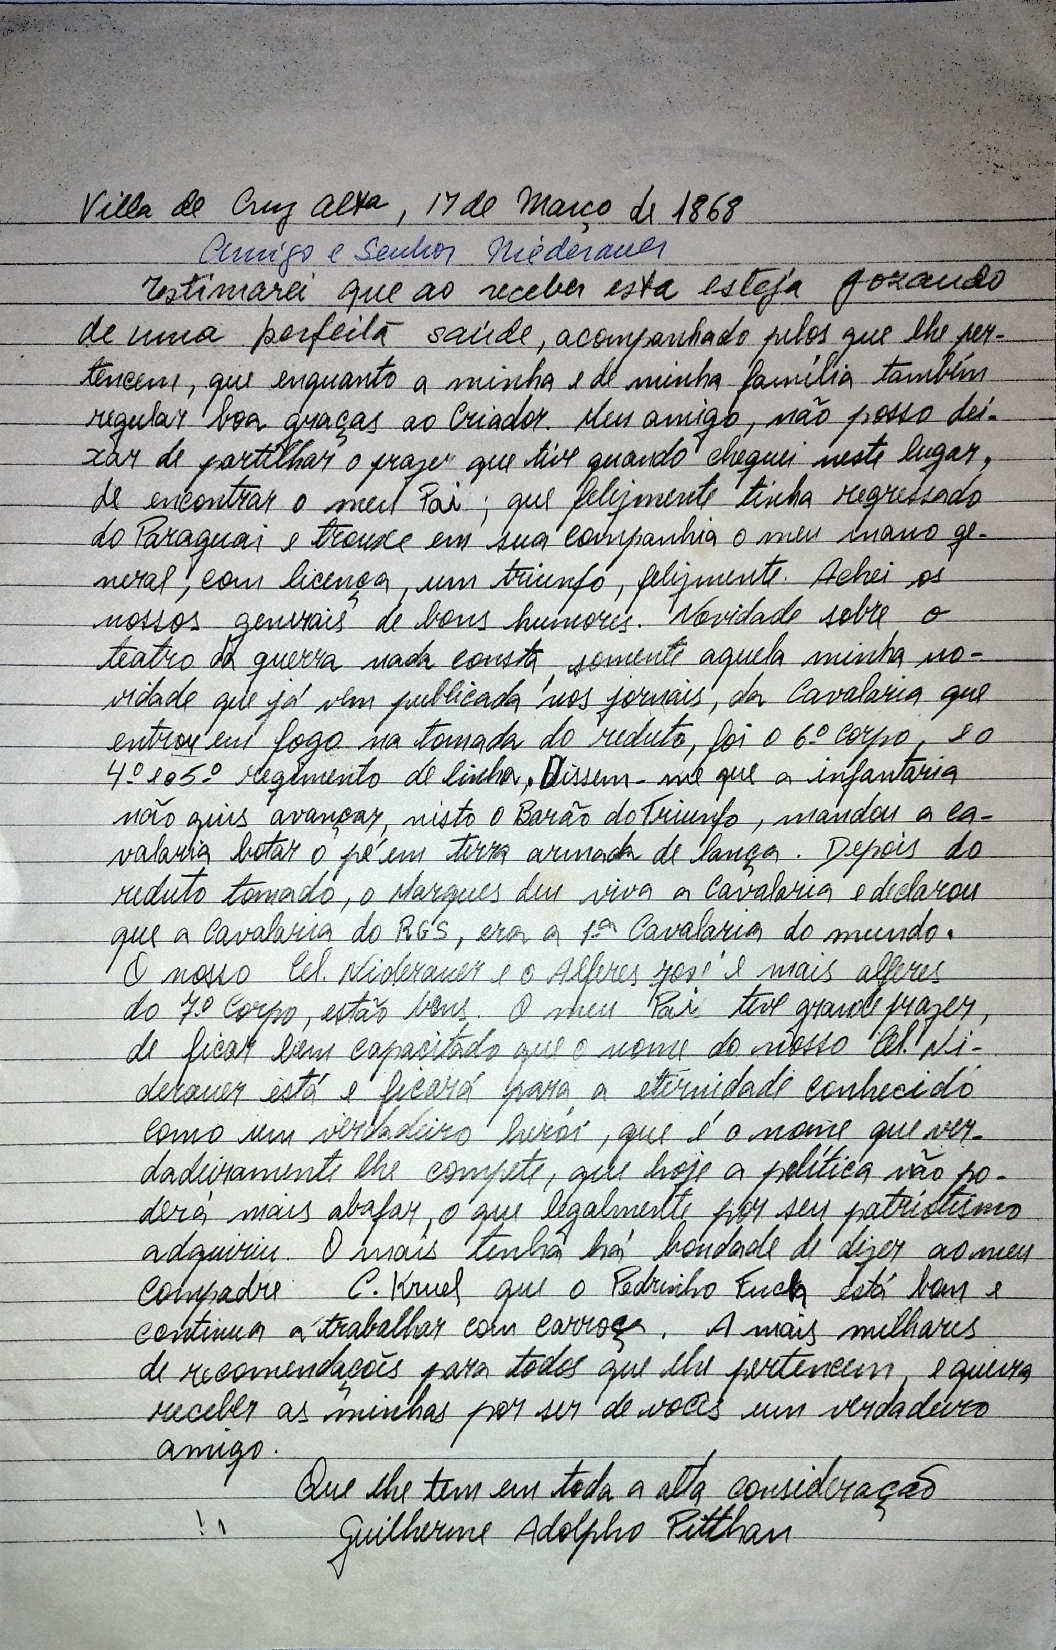 Villa de Cruz Alta, 17 de Março de 1868
Amigo e Senhor Niederauer
Estimarei que ao receber esta esteja gozando
de uma perfeita saúde, acompanhado pelos que lhe per-
tencem, que enquanto a minha e de minha família também
regular boa graças ao Criador. Meu amigo, não posso dei-
xar de partilhar o prazer que tive quando cheguei neste lugar,
de encontrar o meu Pai; que felizmente tinha regressado
do Paraguai e trouxe em sua companhia o meu mano ge-
neral, com licença, um triunfo, felizmente. Achei os
nossos generais de bons humores. Novidade sobre o
teatro da guerra nada consta, somente aquela minha no-
vidade que já vem publicada nos jornais, da Cavalaria que
entrou em fogo na tomada do reduto, foi o 6º Corpo, e o
4º e o 5º regimento de linha. Dissem-me que a infantaria
não quis avançar, nisto o Barão do Triunfo, mandou a ca-
valaria botar o pé em terra armada de lança. Depois do
reduto tomado, o Marques deu viva a Cavalaria e declarou
que a Cavalaria do RGS, era a 1ª Cavalaria do mundo.
O nosso Cel. Niderauer e o Alferes José e mais alferes
do 7º Corpo, estão bons. O meu Pai teve grande prazer,
de ficar bem capacitado que o nome do nosso Cel. Ni-
derauer está e ficará para a eternidade conhecido
como um verdadeiro herói, que é o nome que ver-
dadeiramente lhe compete, que hoje a política não po-
derá mais abafar, o que legalmente por seu patriotismo
adquiriu. O mais tenha há bondade de dizer ao meu
Compadre C. Kruel que o Pedrinho Fuck está bom e
continua a trabalhar com carroça. A mais milhares
de recomendações para todos que lhe pertencem, e queira
receber as minhas por ser de voces um verdadeiro
amigo.
Que lhe tem em toda a alta consideração
Guilherme Adolpho Pitthan